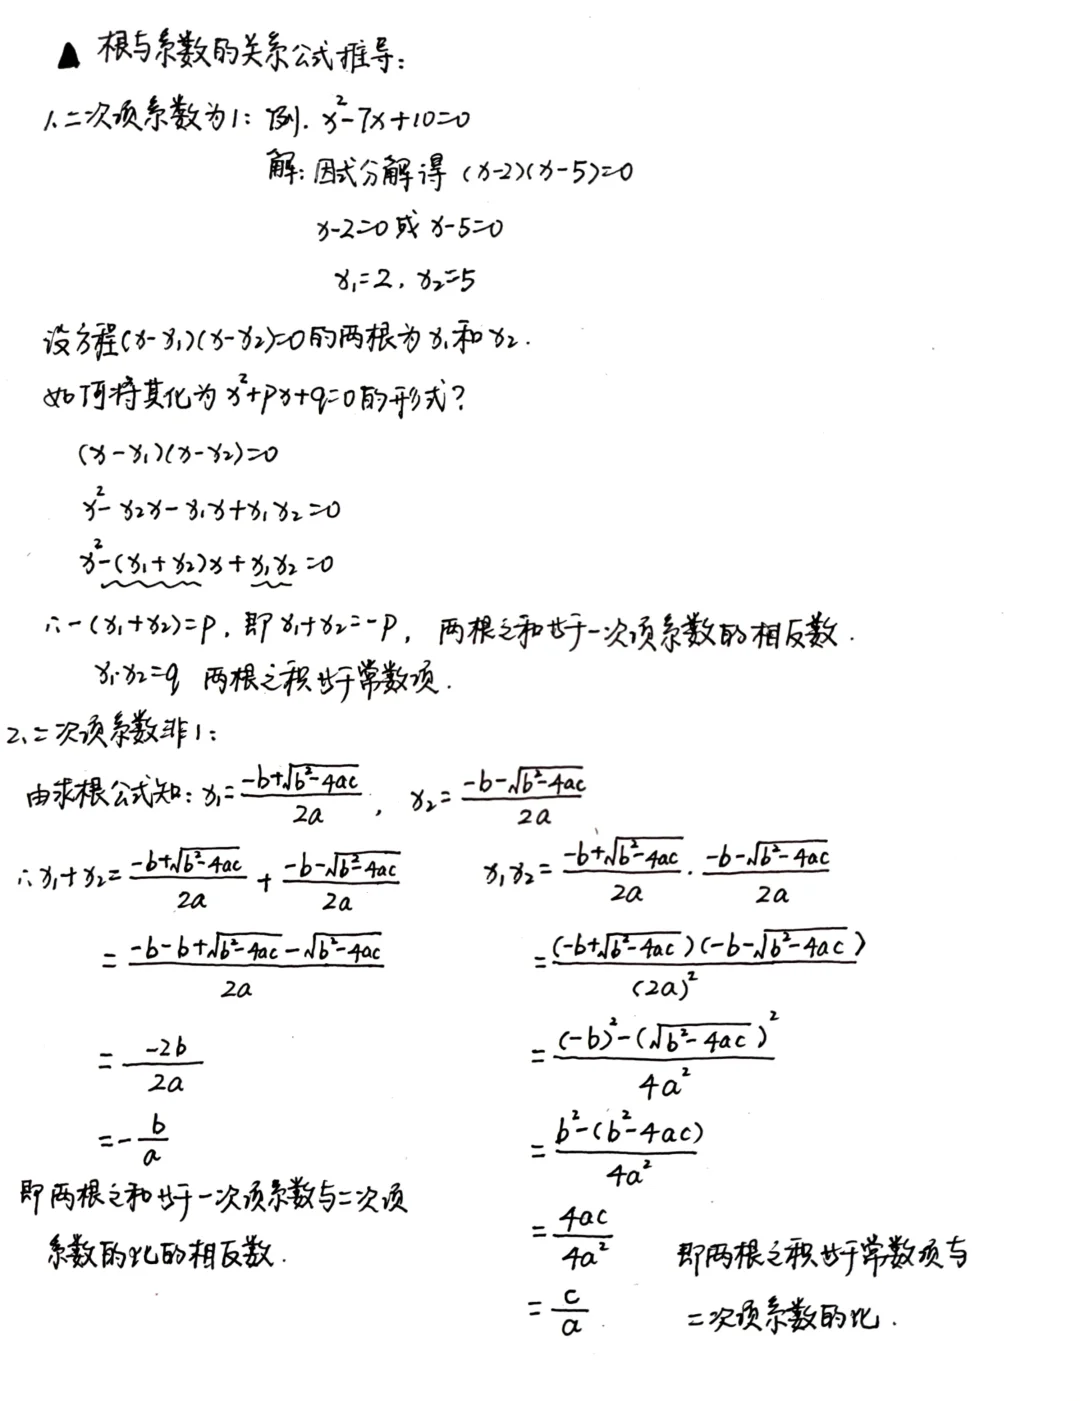 ▲ 根与系数的关系公式推导:
1.二次项系数为1: 例. x²-7x+10=0
解: 因式分解得 (x-2)(x-5)=0
x-2=0或 x-5=0
x₁=2, x₂=5
设方程(x-x₁)(x-x₂)=0的两根为x₁和x₂.
如何将其化为x²+px+q=0的形式?
(x-x₁)(x-x₂)=0
x²-x₂x-x₁x+x₁x₂=0
x²-(x₁+x₂)x+x₁x₂=0
∴-(x₁+x₂)=p, 即x₁+x₂=-p, 两根之和等于一次项系数的相反数.
x₁·x₂=q 两根之积等于常数项.
2.二次项系数非1:
由求根公式知: x₁=(-b+√(b²-4ac))/2a, x₂=(-b-√(b²-4ac))/2a
∴x₁+x₂=(-b+√(b²-4ac))/2a + (-b-√(b²-4ac))/2a
=(-b-b+√(b²-4ac)-√(b²-4ac))/2a
=-2b/2a
=-b/a
即两根之和等于一次项系数与二次项
系数的比的相反数.
x₁x₂=(-b+√(b²-4ac))/2a · (-b-√(b²-4ac))/2a
=(-b+√(b²-4ac))(-b-√(b²-4ac))/(2a)²
=((-b)²-(√(b²-4ac))²)/4a²
=(b²-(b²-4ac))/4a²
=4ac/4a²
=c/a
即两根之积等于常数项与
二次项系数的比.